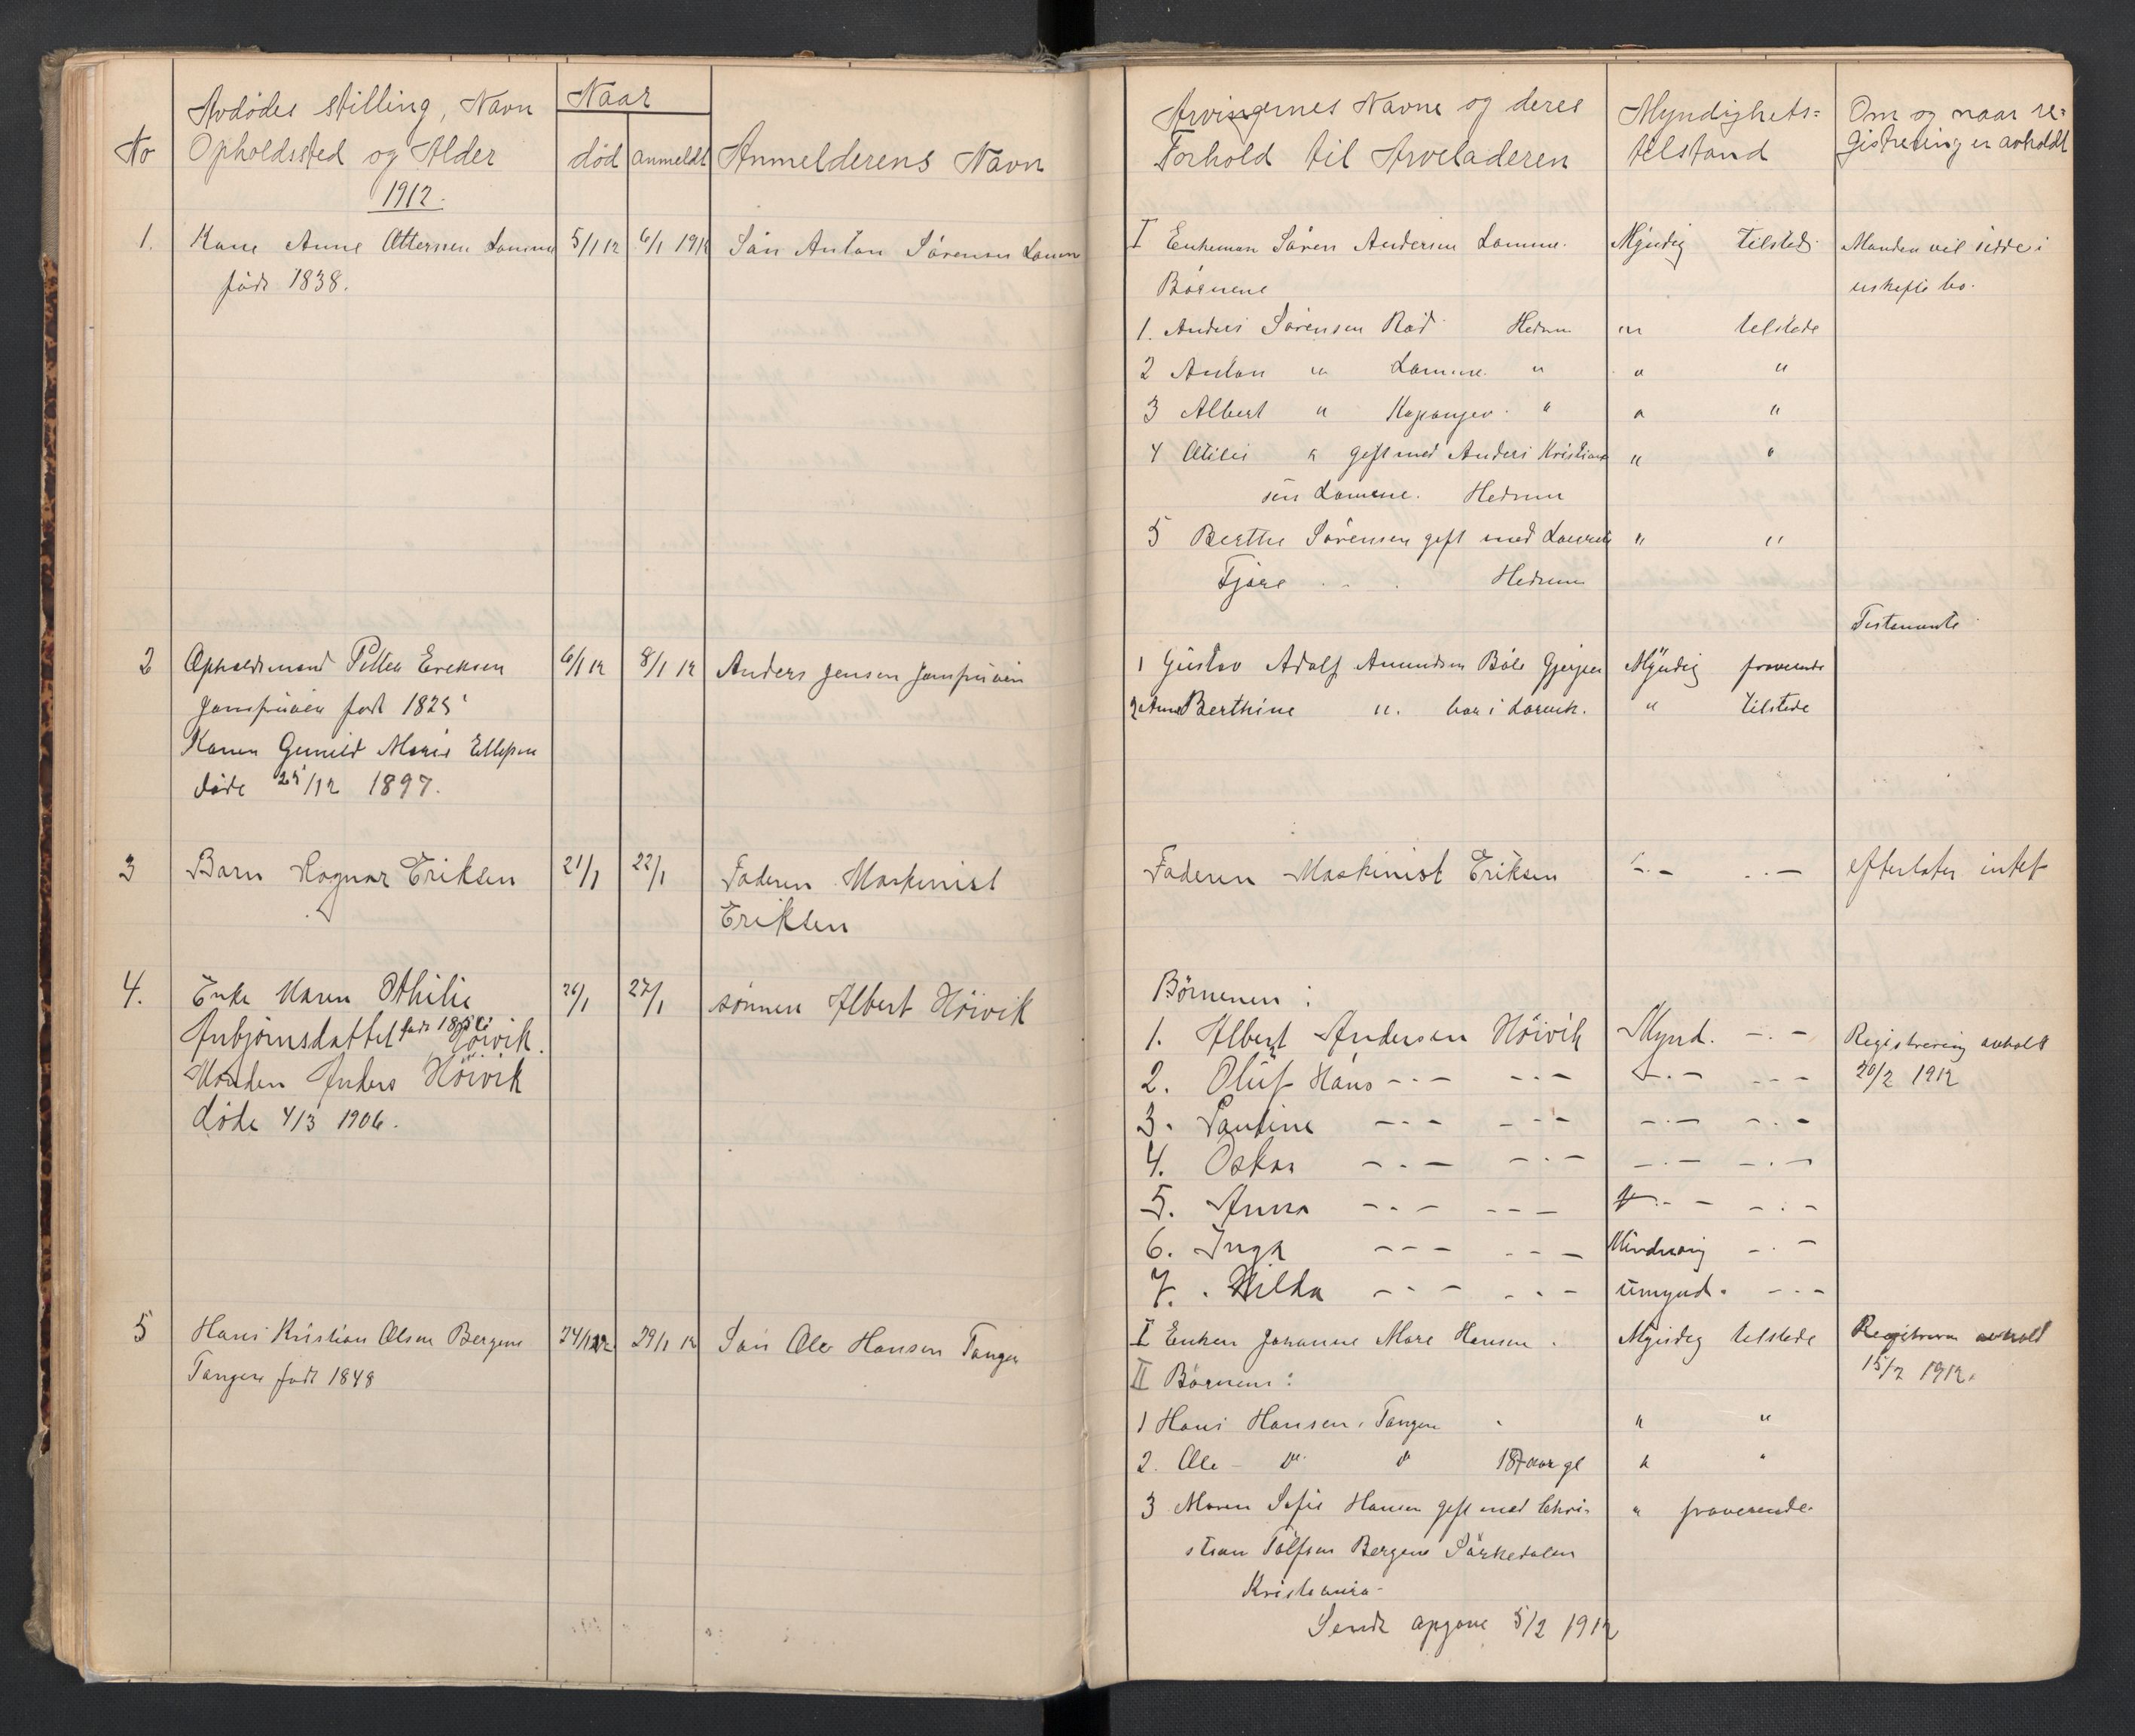 No
Avdødes stilling, Navn
Opholdssted og Alder
1912.
Naar
død
anmeldt
Anmelderens Navn
Arvingernes Navne og deres
Forhold til Arveladeren
Myndighets=
tilstand
Om og naar re=
gistrering er avholdt
1. Kare Anne Ottersen Lamme 5/1 12 6/1 1912 Sön Anton Sörensen Lamme
född 1838.
I Enkeman Sören Andersen Lamme. Myndig tilstede. Manden vil sidde i
Börnene uskifte bo.
1. Anders Sörensen Röd Hedrum " tilstede
2 Anton " Lamme. " " "
3 Albert " " " "
4 Otilie " gift med Anders Kristian " "
sen Lamme. Hedrum
5 Berthe Sörensen gift med Laurits " "
Fjære Hedrum
2 Opholdsmand Petter Eriksen 6/1 12 8/1 12 Anders Jensen Jomfruöien
Jomfruöien født 1825
Karen Gunild Marie Ellefsen
døde 25/12 1897.
Testamente
1 Gustav Adolf Amundsen Böle Gjerpen Myndig fraværende
2 Anne Berthine ". bor i Larvik. " tilstede
3 Barn Ragnar Eriksen 21/1 22/1 Faderen Maskinist
Eriksen
Faderen Maskinist Eriksen -.- -.- efterlater intet
4. Enke Maren Othilie 26/1 27/1 sönnen Albert Höivik
Anbjörnsdatter Höivik.
Manden Anders Höivik
døde 4/3 1906.
Börnenen :
1. Albert Andersen Höivik Mynd. -.- Registrering avholt
2. Oluf Hans -.- -.- -.- -.- 20/2 1912
3. Pauline -.- -.- -.- -.-
4. Oskar -.- -.- -.- -.-
5. Anna -.- -.- -.- -.-
6. Inga -.- -.- Mindreaarig -.-
7. Hilda -.- -.- umynd. -.-
5 Hans Kristian Olsen Bergene 24/1 12 29/1 12 Sön Ole Hansen Tangen
Tangen født 1848
I Enken Johanne Mare Hansen. Myndig tilstede Registrering avholt
II Börnene : 15/2 1912.
1 Hans Hansen, Tangen " "
2. Ole " " 18 aar gl " "
3 Maren Sofie Hansen gift med Chri- " fraverende.
stian Tolfsen Bergene Sörkedalen
Kristiania-
Sendt opgave 5/2 1912